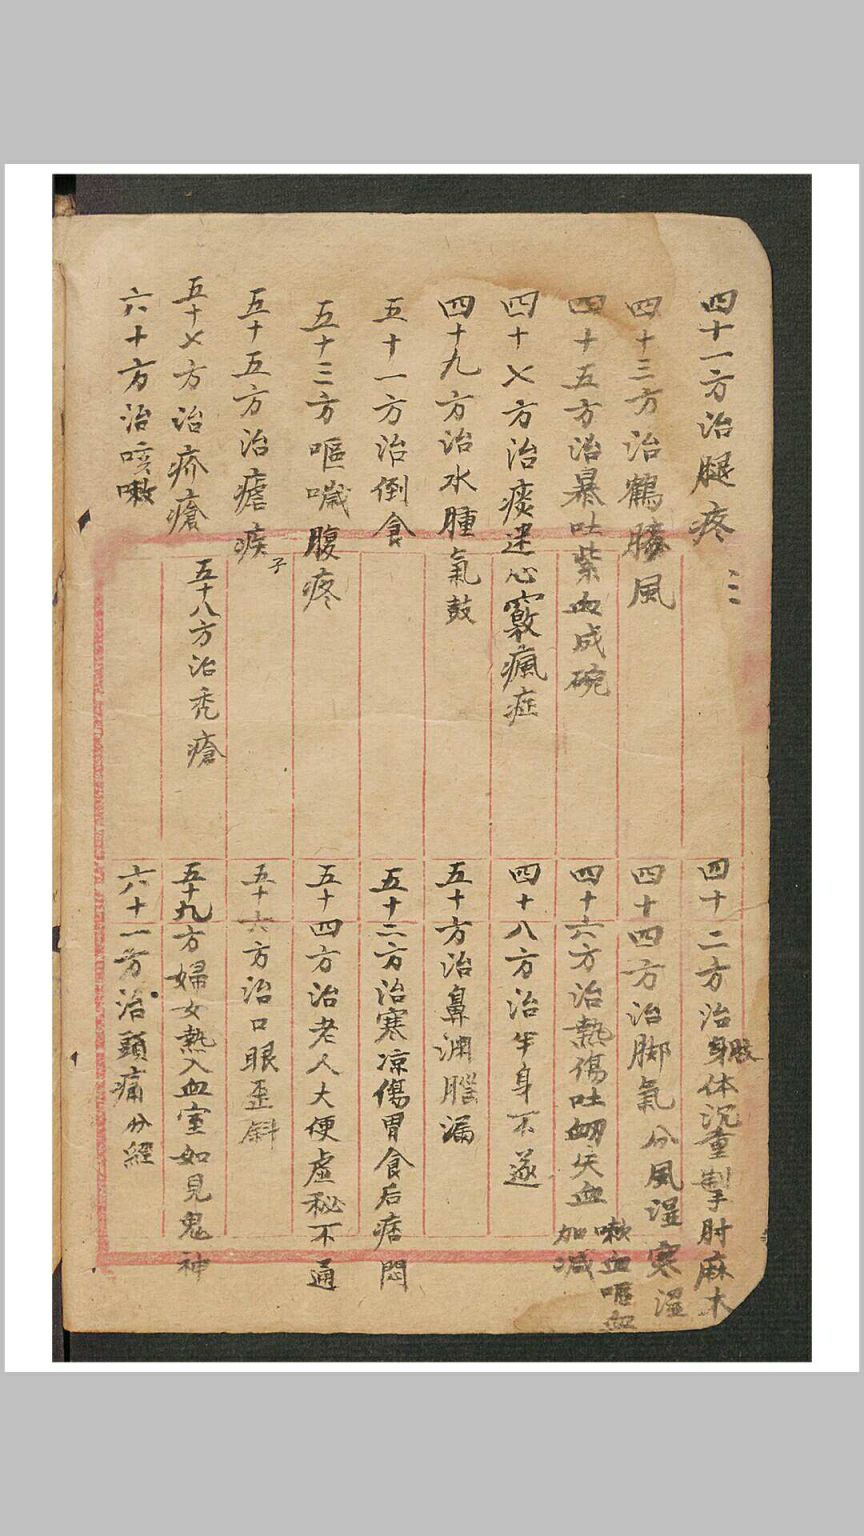 四十一方治腿疼
四十二方治身体沉重掣肘麻木
四十三方治鶴膝風
四十四方治脚氣分風湿寒湿
四十五方治暴吐紫血成碗
四十六方治熱傷吐衂失血
嗽血嘔血
加减
四十七方治痰迷心竅瘋症
四十八方治半身不遂
四十九方治水腫氣鼓
五十方治鼻渊腦漏
五十一方治倒食
五十二方治寒凉傷胃食后痞悶
五十三方嘔喊腹疼
五十四方治老人大便虚秘不通
五十五方治瘧疾子
五十六方治口眼歪斜
五十七方治疥瘡
五十八方治秃瘡
五十九方婦女熱入血室如見鬼神
六十方治咳嗽
六十一方治頭痛分經